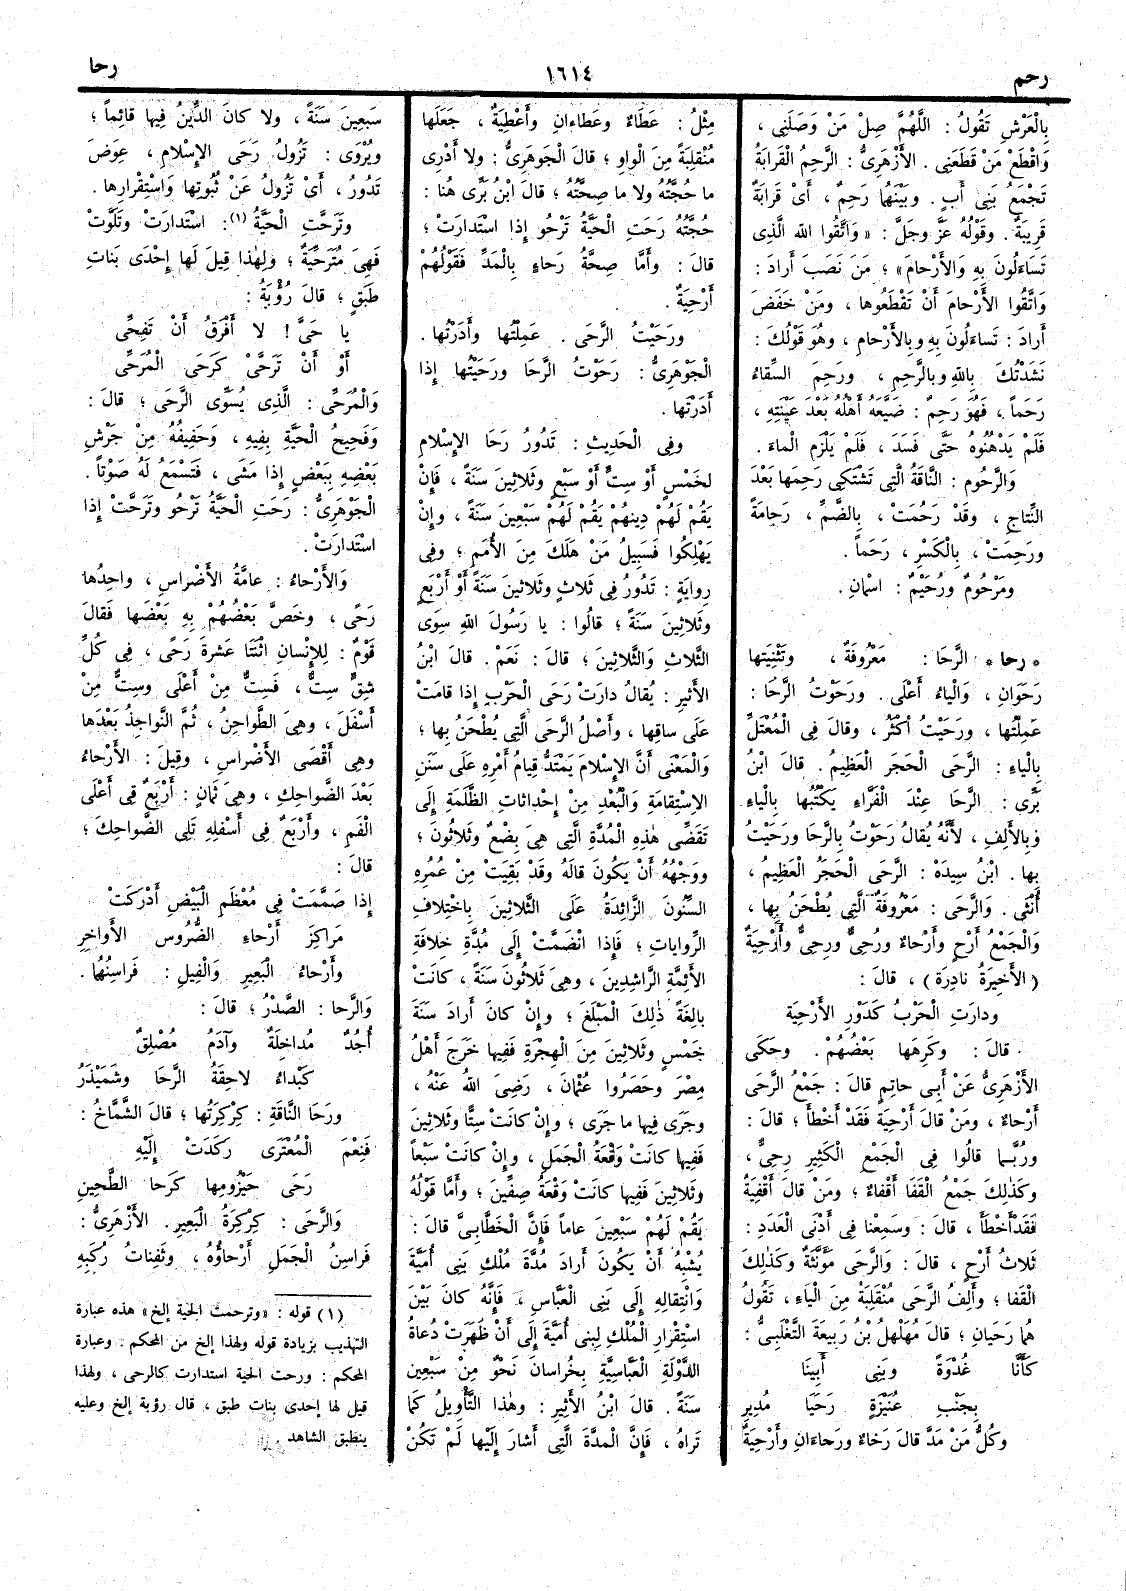 رحم
١٦١٤
رحا
بِالْعَرْشِ تَقُولُ : اللَّهُمَّ صِلْ مَنْ وَصَلَنِى ،
وَاقْطَعْ مَنْ قَطَعَنِى . الأَزْهَرِىُّ : الرَّحِمُ الْقَرَابَةُ
تَجْمَعُ بَنِى أَبٍ . وبَيْنَهُما رَحِمٌ ، أَىْ قَرابَةٌ
قَرِيبَةٌ . وقَوْلُهُ عَزَّ وجَلَّ : « وَاتَّقُوا الله الَّذِى
تَساءَلُونَ بِهِ وَالأَرْحامَ» ؛ مَنْ نَصَبَ أَرادَ :
وَاتَّقُوا الأَرْحامَ أَنْ تَقْطَعُوها ، ومَنْ خَفَضَ
أَرادَ : تَساءَلُونَ بِهِ وبِالأَرْحامِ ، وهُوَ قَوْلُكَ :
نَشَدْتُكَ بِاللهِ وبِالرَّحِمِ ، ورَحِمَ السِّقاءُ
رَحَماً ، فَهُوَ رَحِمٌ : ضَيَّعَهُ أَهْلُهُ بَعْدَ عِيْنَتِهِ ،
فَلَمْ يَدْهُنُوهُ حَتَّى فَسَدَ ، فَلَمْ يَلْزَمِ الْماءَ .
وَالرَّحُومُ : النَّاقَةُ الَّتِى تَشْتَكِى رَحِمَها بَعْدَ
النِّتاجِ ، وقَدْ رَحُمَتْ ، بِالضَّمِّ ، رَحامَةً
ورَحِمَتْ ، بِالْكَسْرِ ، رَحَماً .
ومَرْحُومٌ ورُحَيْمٌ : اسْمانِ .
* رحا * الرَّحَا : مَعْرُوفَةٌ ، وتَثْنِيَتها
رَحَوانِ ، وَالْياءُ أَعْلَى . ورَحَوْتُ الرَّحَا :
عَمِلْتُها ، ورَحَيْتُ أَكْثَرُ ، وقالَ فِى الْمُعْتَلِّ
بِالْياءِ : الرَّحَى الْحَجَر الْعَظِيمُ . قالَ ابْنُ
بَرِّى : الرَّحا عِنْدَ الْفَرَّاءِ يَكْتُبُها بِالْياءِ
وَبِالأَلِفِ ، لأَنَّهُ يُقالُ رَحَوْتُ بِالرَّحَا ورَحَيْتُ
بِها . ابْنُ سِيدَهْ : الرَّحَى الْحَجَرُ الْعَظِيمُ ،
أُنْثَى . وَالرَّحَى : مَعْرُوفَةٌ الَّتِى يُطْحَنُ بِها ،
وَالْجَمْعُ أَرْحٍ وأَرْحاءٌ ورُحِىٌّ ورِحِىٌّ وأَرْحِيَةٌ
( الأَخِيرَةُ نادِرَة ) ، قالَ :
ودارَتِ الْحَرْبُ كَدَوْرِ الأَرْحِيَة
قالَ : وكَرِهَها بَعْضُهُمْ . وحَكَى
الأَزْهَرِىُّ عَنْ أَبِى حاتِمٍ قالَ : جَمْعُ الرَّحَى
أَرْحاءٌ ، ومَنْ قالَ أَرْحِيَة فَقَدْ أَخْطَأَ ؛ قالَ :
ورُبَّما قالُوا فِى الْجَمْعِ الْكَثِيرِ رِحِىٌّ ،
وكَذٰلِكَ جَمْعُ الْقَفَا أَقْفاءٌ ؛ ومَنْ قالَ أَقْفِيَةٌ
فَقَدْ أَخْطَأَ ، قالَ : وسَمِعْنا فِى أَدْنَى الْعَدَدِ :
ثَلاثُ أَرْحٍ ، قالَ : وَالرَّحَى مُؤَنَّثَةٌ وكَذٰلِكَ
الْقَفا ؛ وأَلِفُ الرَّحَى مُنْقَلِبَةٌ مِنَ الْياءِ ، تَقُولُ
هُما رَحَيانِ ؛ قالَ مُهَلْهِلُ بْنُ رَبِيعَةَ التَّغْلَبِىُّ :
كَأَنَّا غُدْوَةً وبَنِى أَبِينَا
بِجَنْبِ عُنَيْزَةٍ رَحَيَا مُدِيرِ
وكُلُّ مَنْ مَدَّ قالَ رَحاءٌ ورَحاءَانِ وأَرْحِيَةٌ
مِثْلُ : عَطاءٌ وعَطاءانِ وأَعْطِيَةٌ ، جَعَلَها
مُنْقَلِبَةً مِنَ الْواوِ ؛ قالَ الْجَوْهَرِىُّ : ولا أَدْرِى
ما حُجَّتُهُ ولا ما صِحَّتُهُ ؛ قالَ ابْنُ بَرِّى هُنا :
حُجَّتُهُ رَحَتِ الْحَيَّةُ تَرْحُو إِذا اسْتَدارَتْ ؛
قالَ : وأَمَّا صِحَّةُ رَحاءٍ بِالْمَدِّ فَقَوْلُهُمْ
أَرْحِيَةٌ .
ورَحَيْتُ الرَّحَى . عَمِلْتُها وأَدَرْتُها .
الْجَوْهَرِىُّ : رَحَوْتُ الرَّحَا ورَحَيْتُها إِذا
أَدَرْتَها .
وفِى الْحَدِيثِ : تَدُورُ رَحَا الإِسْلامِ
لِخَمْسٍ أَوْ سِتٍّ أَوْ سَبْعٍ وثَلاثِينَ سَنَةً ، فَإِنْ
يَقُمْ لَهُمْ دِينهُمْ يَقُمْ لَهُمْ سَبْعِينَ سَنَةً ، وإِنْ
يَهْلِكُوا فَسَبِيلُ مَنْ هَلَكَ مِنَ الأُمَمِ ؛ وفِى
رِوايَةٍ : تَدُورُ فِى ثَلاثٍ وثَلاثِينَ سَنَةً أَوْ أَرْبَعٍ
وثَلاثِينَ سَنَةً ؛ قالُوا : يا رَسُولَ اللهِ سِوَى
الثَّلاثِ وَالثَّلاثِينَ ؛ قالَ : نَعَمْ . قالَ ابْنُ
الأَثِيرِ : يُقالُ دارَتْ رَحَى الْحَرْبِ إِذا قامَتْ
عَلَى ساقِها ، وأَصْلُ الرَّحَى الَّتِى يُطْحَنُ بِها ؛
وَالْمَعْنَى أَنَّ الإِسْلامَ يَمْتَدُّ قِيامُ أَمْرِهِ عَلَى سَنَنِ
الاِسْتِقامَةِ وَالْبُعْدِ مِنْ إِحْداثاتِ الظَّلَمَةِ إِلَى
تَقَضِّى هٰذِهِ الْمُدَّةِ الَّتِى هِىَ بِضْعٌ وثَلاثُونَ ؛
ووَجْهُهُ أَنْ يَكُونَ قالَهُ وقَدْ بَقِيَتْ مِنْ عُمُرِهِ
السِّنُونَ الزَّائِدَةُ عَلَى الثَّلاثِينَ بِاخْتِلافِ
الرِّواياتِ ؛ فَإِذا انْضَمَّتْ إِلَى مُدَّةِ خِلافَةِ
الأَئِمَّةِ الرَّاشِدِينَ ، وهِىَ ثَلاثُونَ سَنَةً ، كانَتْ
بالِغَةً ذٰلِكَ الْمَبْلَغَ ؛ وإِنْ كانَ أَرادَ سَنَةَ
خَمْسٍ وثَلاثِينَ مِنَ الْهِجْرَةِ فَفِيها خَرَجَ أَهْلُ
مِصْرَ وحَصَرُوا عُثْمانَ ، رَضِىَ اللهُ عَنْهُ ،
وجَرَى فِيها ما جَرَى ؛ وإِنْ كانَتْ سِتًّا وثَلاثِينَ
فَفِيها كانَتْ وَقْعَةُ الْجَمَلِ ، وإِنْ كانَتْ سَبْعاً
وثَلاثِينَ فَفِيها كانَتْ وَقْعَةُ صِفِّينَ ؛ وأَمَّا قَوْلُهُ
يَقُمْ لَهُمْ سَبْعِينَ عاماً فَإِنَّ الْخَطَّابِىَّ قالَ :
يُشْبِهُ أَنْ يَكُونَ أَرادَ مُدَّةَ مُلْكِ بَنِى أُمَيَّةَ
وَانْتِقالِهِ إِلَى بَنِى الْعَبَّاسِ ، فَإِنَّهُ كانَ بَيْنَ
اسْتِقْرارِ الْمُلْكِ لِبَنِى أُمَيَّةَ إِلَى أَنْ ظَهَرَتْ دُعاةُ
الدَّوْلَةِ الْعَبَّاسِيَّةِ بِخُراسانَ نَحْوٌ مِنْ سَبْعِينَ
سَنَةً . قالَ ابْنُ الأَثِيرِ : وهٰذا التَّأْوِيلُ كَما
تَراهُ ، فَإِنَّ الْمُدَّةَ الَّتِى أَشارَ إِلَيْها لَمْ تَكُنْ
سَبْعِينَ سَنَةً ، ولا كانَ الدِّينُ فِيها قائِماً ؛
ويُرْوَى : تَزُولُ رَحَى الإِسْلامِ ، عِوَضَ
تَدُورُ ، أَىْ تَزُولُ عَنْ ثُبُوتِها وَاسْتِقْرارِها .
وتَرَحَّتِ الْحَيَّةُ (١) : اسْتَدارَتْ وتَلَوَّتْ
فَهِىَ مُتَرَحِّيَةٌ ؛ ولِهٰذا قِيلَ لَها إِحْدَى بَناتِ
طَبَقٍ ؛ قالَ رُؤْبَةُ :
يا حَىَّ ! لا أَفْرَقُ أَنْ تَفِحِّى
أَوْ أَنْ تَرَحَّىْ كَرَحَى الْمُرَحِّى
وَالْمُرَحِّى : الَّذِى يُسَوِّى الرَّحَى ؛ قالَ :
وفَحِيحُ الْحَيَّةِ بِفِيهِ ، وَحَفِيفُهُ مِنْ جَرْشِ
بَعْضِهِ بِبَعْضٍ إِذا مَشَى ، فَتَسْمَعُ لَهُ صَوْتاً .
الْجَوْهَرِىُّ : رَحَتِ الْحَيَّةُ تَرْحُو وتَرَحَّتْ إِذا
اسْتَدارَتْ .
وَالأَرْحاءُ : عامَّةُ الأَضْراسِ ، واحِدُها
رَحًى ، وخَصَّ بَعْضُهُمْ بِهِ بَعْضَها فَقالَ
قَوْمٌ : لِلإِنْسانِ اثْنَتا عَشْرةَ رَحًى ، فِى كُلِّ
شِقٍّ سِتٌّ ، فَسِتٌّ مِنْ أَعْلَى وسِتٌّ مِنْ
أَسْفَلَ ، وهِىَ الطَّواحِنُ ، ثُمَّ النَّواجِذُ بَعْدَها
وهِى أَقْصَى الأَضْراسِ ، وقِيلَ : الأَرْحاءُ
بَعْدَ الضَّواحِكِ ، وهِىَ ثَمانٍ : أَرْبَعٌ فِى أَعْلَى
الْفَمِ ، وأَرْبَعٌ فِى أَسْفَلِهِ تَلِى الضَّواحِكَ ؛
قالَ :
إِذا صَمَّمَتْ فِى مُعْظَمِ الْبَيْضِ أَدْرَكَتْ
مَراكِزَ أَرْحاءِ الضُّرُوسِ الأَواخِرِ
وأَرْحاءُ الْبَعِيرِ وَالْفِيلِ : فَراسِنُهُا .
وَالرَّحا : الصَّدْرُ ؛ قالَ :
أُجُدٌ مُداخَلَةٌ وآدَمُ مُصْلِقٌ
كَبْداءُ لاحِقَةُ الرَّحا وشَمَيْذَرُ
ورَحَا النَّاقَةِ : كِرْكِرَتُها ؛ قالَ الشَّمَّاخُ :
فَنِعْمَ الْمُعْتَرَى رَكَدَتْ إِلَيْهِ
رَحَى حَيْزُومِها كَرَحا الطَّحِينِ
وَالرَّحَى : كِرْكِرَةُ الْبَعِيرِ . الأَزْهَرِىُّ :
فَراسِنُ الْجَمَلِ أَرْحاؤُهُ ، وثَفِناتُ رُكَبِهِ
(١) قوله : «وترحت الحية إلخ» هذه عبارة
التهذيب بزيادة قوله ولهذا إلخ من المحكم . وعبارة
المحكم : ورحت الحية استدارت كالرحى ، ولهذا
قيل لها إحدى بنات طبق ، قال رؤبة إلخ وعليه
ينطبق الشاهد .